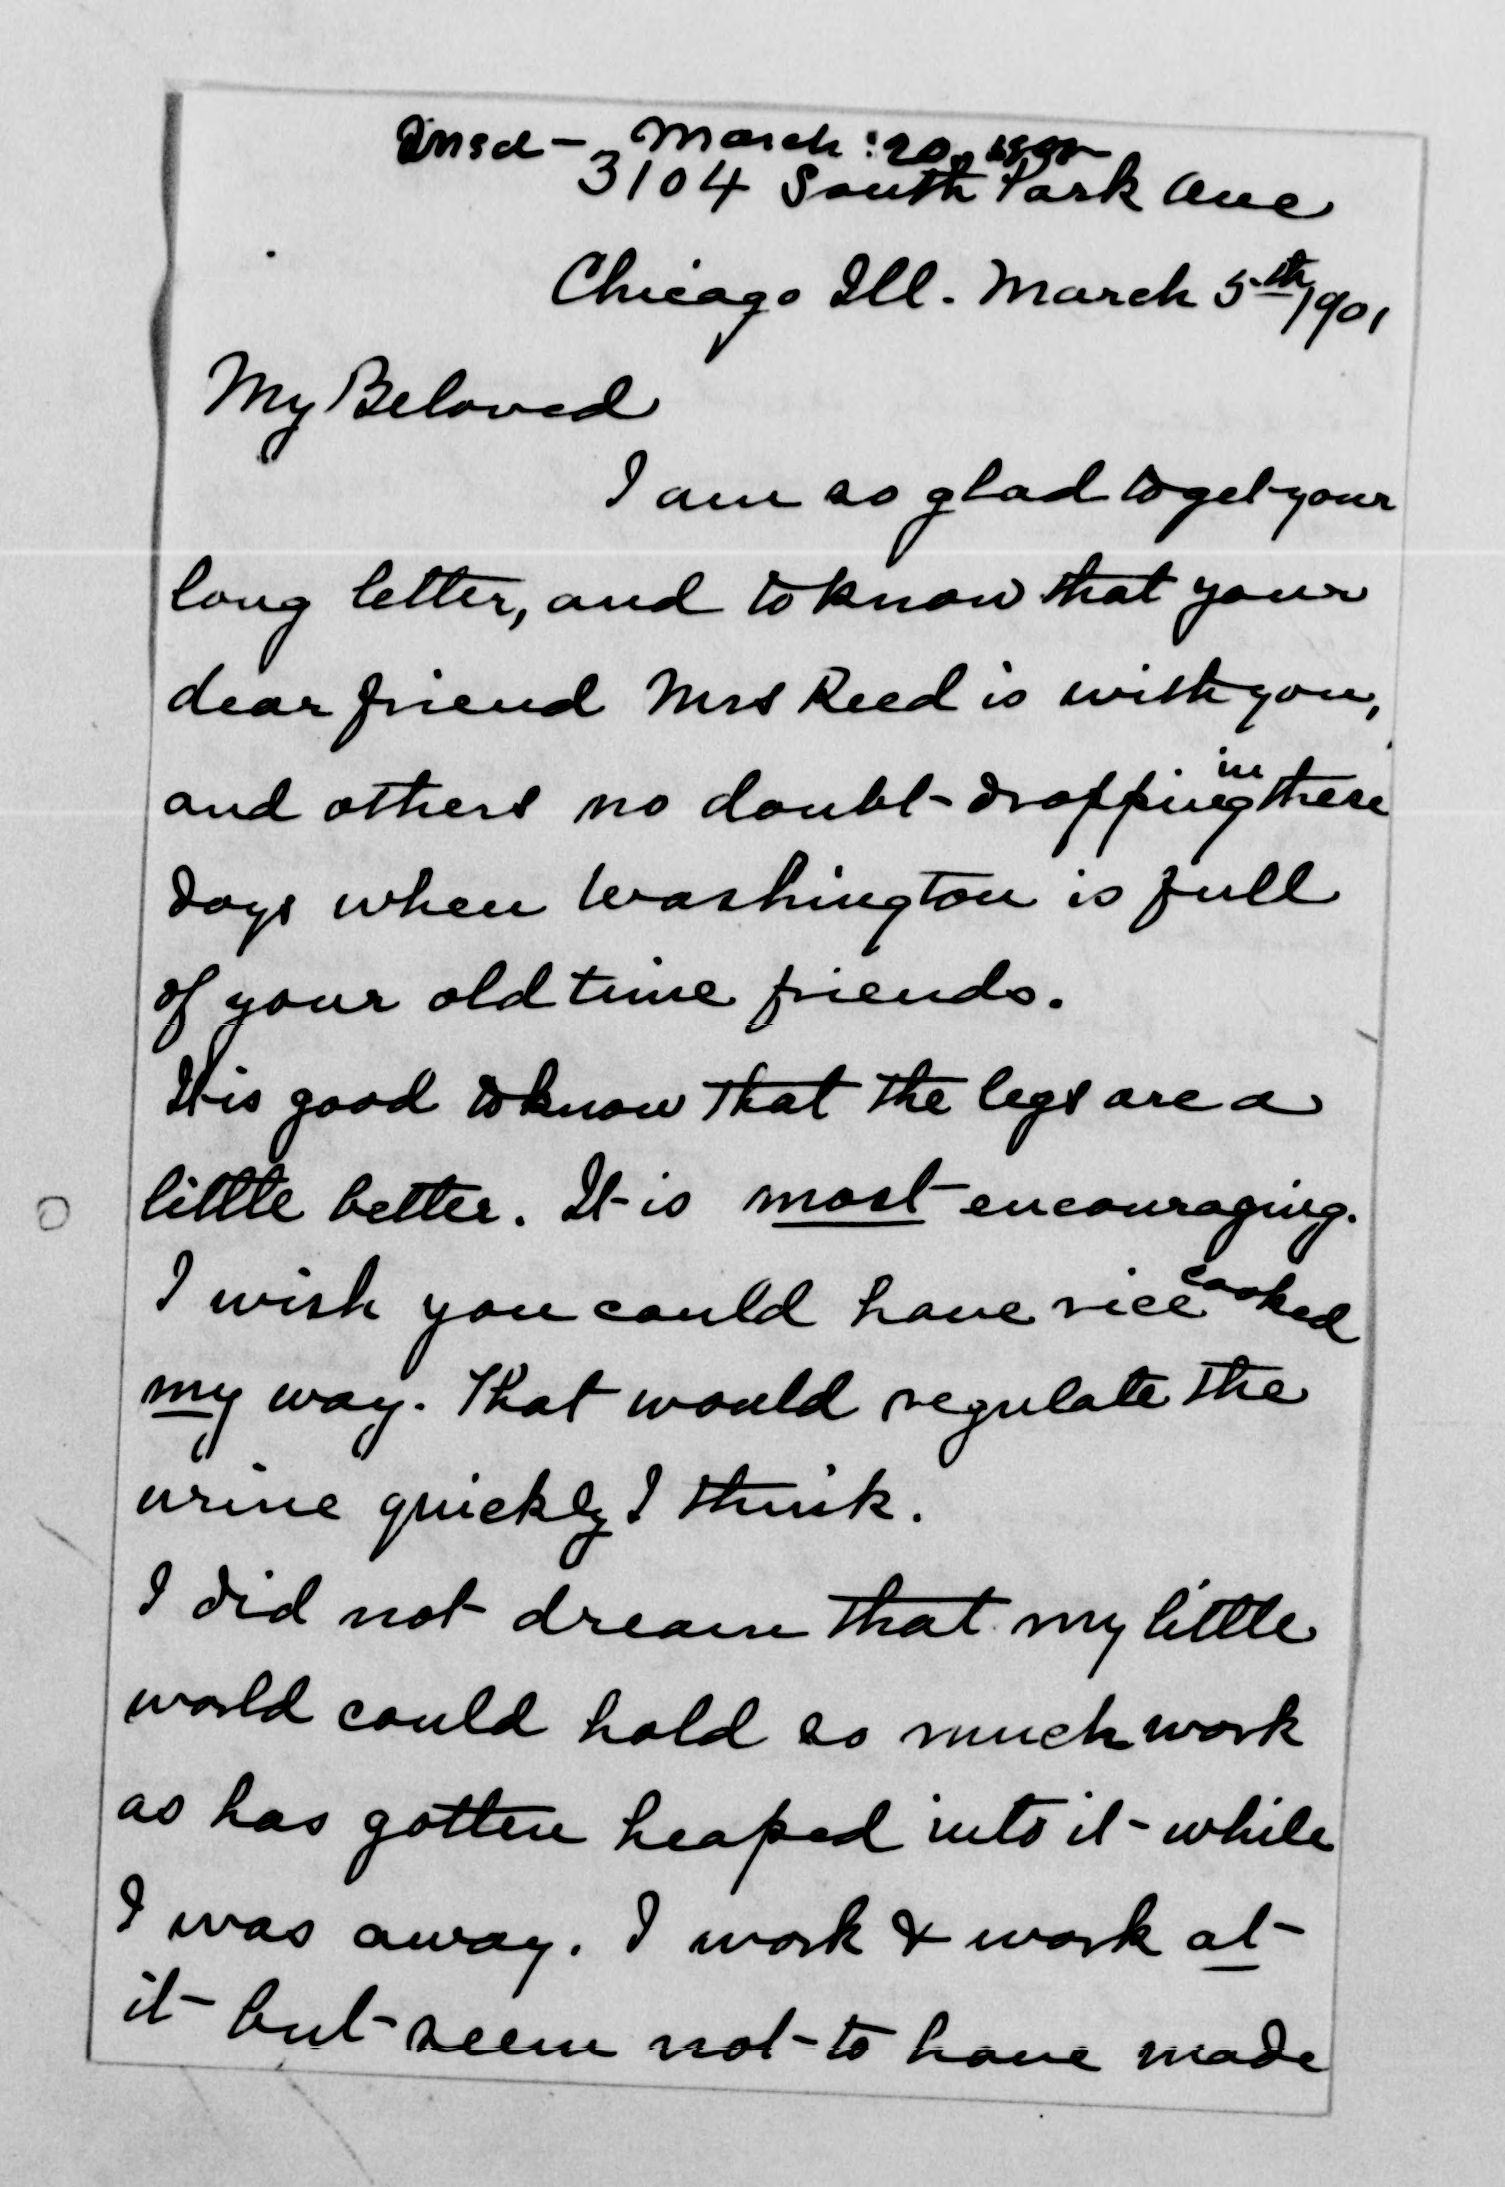 Ansd - March : 20,
3104 South Park Ave
Chicago Ill. March 5th 1901
My Beloved
I am so glad to get your
long letter, and to know that your
dear friend Mrs Reed is with you,
and others no doubt - dropping in these
days when Washington is full
of your old time friends.
It is good to know that the legs are a
little better. It is most encouraging.
I wish you could have rice cooked
my way. That would regulate the
urine quickly I think.
I did not dream that my little
world could hold so much work
as has gotten heaped into it - while
I was away. I work & work at -
it - but - seem not - to have made